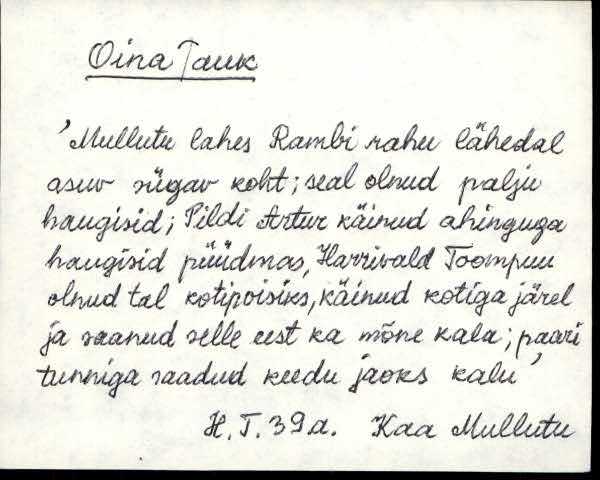 Oina Tauk
'Mullutu lahes Rambi rahu lähedal
asuv sügav koht; seal olnud palju
haugisid; Pildi Artur käinud ahinguga
haugisid püüdmas, Harrivald Toompuu
olnud tal kotipoisiks, käinud kotiga järel
ja saanud selle eest ka mõne kala; paari
tunniga saadud keedu jaoks kalu'
H. T. 39 a. Kaa Mullutu